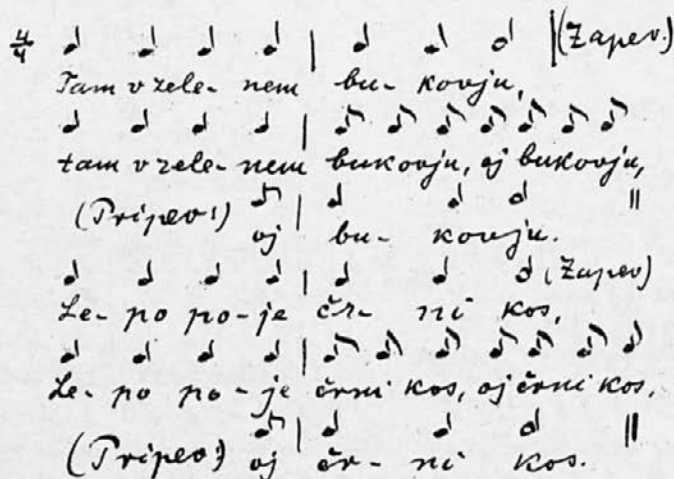 4/4 (Zapev.)
Tam v zele- nem bu- kovju,
tam v zele- nem bukovju, oj bukovju,
(Pripev:) oj bu- kovju.
(Zapev)
Le- po po- je čr- ni kos,
Le- po po- je črni kos, oj črni kos,
(Pripev:) oj čr- ni kos.